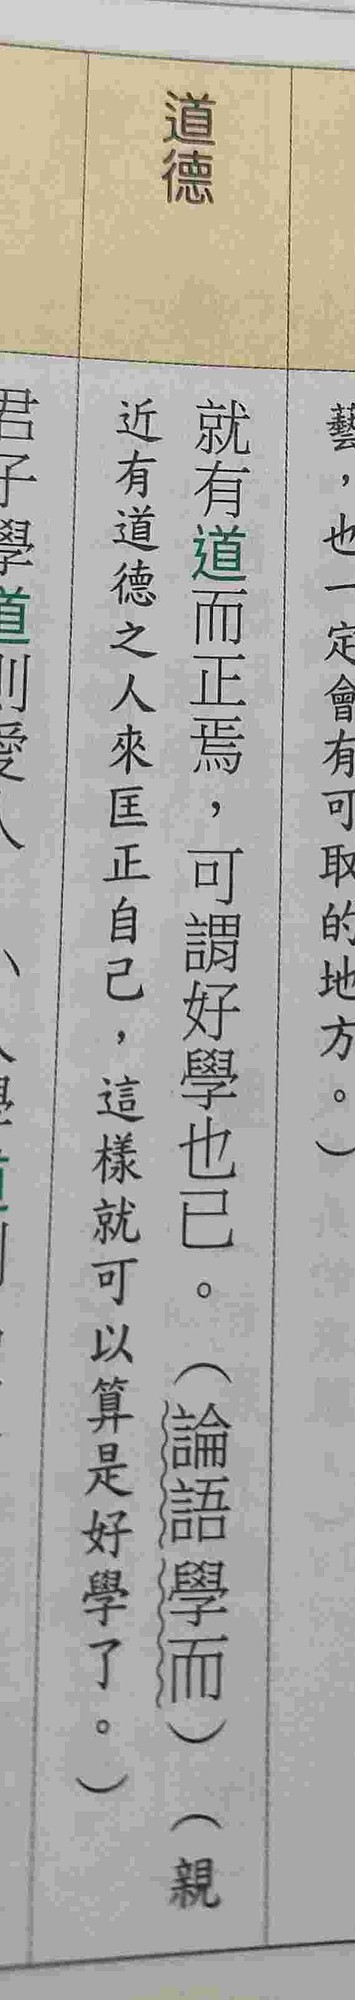 藝，也一定會有可取的地方。）
道德
就有道而正焉，可謂好學也已。（論語學而）（親
近有道德之人來匡正自己，這樣就可以算是好學了。）
君子學道則愛人